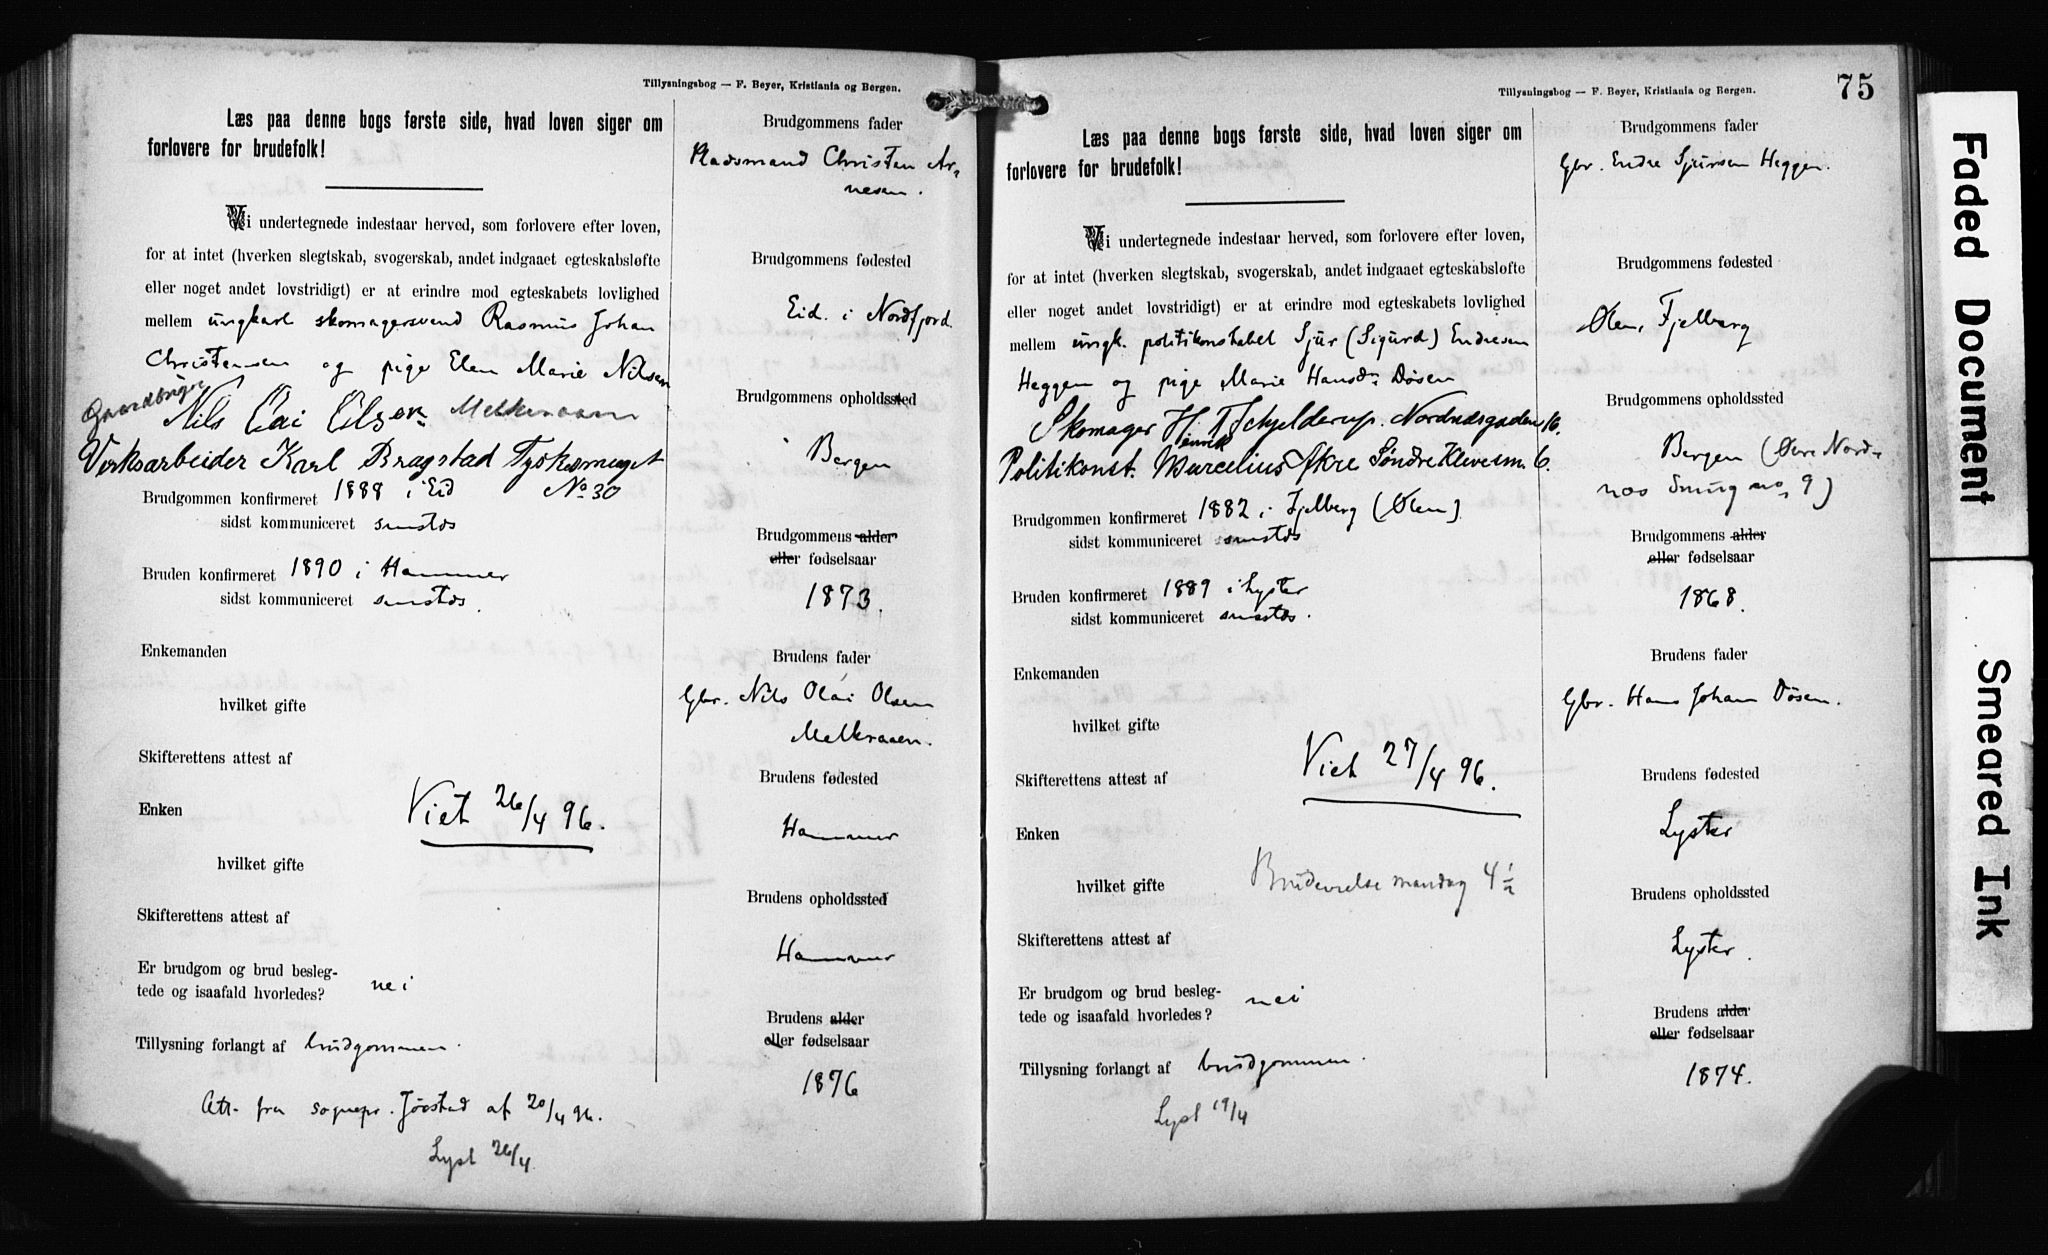 Tillysningsbog — F. Beyer, Kristiania og Bergen.
Læs paa denne bogs første side, hvad loven siger om
forlovere for brudefolk!
Vi undertegnede indestaar herved, som forlovere efter loven,
for at intet (hverken slegtskab, svogerskab, andet indgaaet egteskabsløfte
eller noget andet lovstridigt) er at erindre mod egteskabets lovlighed
mellem ungkarl skomagersvend Rasmus Johan
Christensen og pige Elen Marie Nilsen
Gaardbruger Nils Olai Olsen Melkeraaen
Verksarbeider Karl Bragstad Tyskesmuget
No 30
Brudgommen konfirmeret 1888 i Eid
sidst kommuniceret smstds
Bruden konfirmeret 1890 i Hammer
sidst kommuniceret smstds.
Enkemanden
hvilket gifte
Skifterettens attest af
Viet 26/4 96.
Enken
hvilket gifte
Skifterettens attest af
Er brudgom og brud besleg-
tede og isaafald hvorledes? nei
Tillysning forlangt af brudgommen.
Att. fra sognepr. Jörstad af 20/4 96.
Lyst 26/4
Brudgommens fader
Pladsmand Christen Ar-
nesen.
Brudgommens fødested
Eid. i Nordfjord.
Brudgommens opholdssted
Bergen
Brudgommens alder
eller fødselsaar
1873.
Brudens fader
Gbr. Nils Olai Olsen
Melkeraaen.
Brudens fødested
Hammer
Brudens opholdssted
Hammer
Brudens alder
eller fødselsaar
1876
Tillysningsbog — F. Beyer, Kristiania og Bergen.
75
Læs paa denne bogs første side, hvad loven siger om
forlovere for brudefolk!
Vi undertegnede indestaar herved, som forlovere efter loven,
for at intet (hverken slegtskab, svogerskab, andet indgaaet egteskabsløfte
eller noget andet lovstridigt) er at erindre mod egteskabets lovlighed
mellem ungk. politikonstabel Sjur (Sigurd) Endresen
Heggen og pige Marie Hansdr Døsen
Skomager H. T Schjelderup. Nordnæsgaden 16.
Politikonst. Henrik Marcelius Akre Søndre Klevesm. 6.
Brudgommen konfirmeret 1882 i Fjelberg (Ølen)
sidst kommuniceret smstds
Bruden konfirmeret 1889 i Lyster
sidst kommuniceret smstds.
Enkemanden
hvilket gifte
Skifterettens attest af
Viet 27/4 96.
Enken
hvilket gifte
Brudevielse mandag 4 1/2
Skifterettens attest af
Er brudgom og brud besleg-
tede og isaafald hvorledes? nei
Tillysning forlangt af brudgommen.
Lyst 19/4
Brudgommens fader
Gbr. Endre Sjursen Heggen.
Brudgommens fødested
Ølen, Fjelberg
Brudgommens opholdssted
Bergen (Øvre Nord-
næs Smug no 9)
Brudgommens alder
eller fødselsaar
1868.
Brudens fader
Gbr. Hans Johan Døsen.
Brudens fødested
Lyster
Brudens opholdssted
Lyster.
Brudens alder
eller fødselsaar
1874.
Faded Document
Smeared Ink